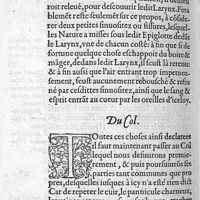 roit releué, pour descouurir ledit Larynx. Fina
blemẽt reste seulemẽt sur ce propos, à cõside-
rer deux petites sinuositez ou fissures, lesquel-
les Nature a mises sous ledit Epiglotte dedẽs
le Larynx, vne de chacun costé: à fin que si de
fortune quelque chose eschappoit du boire &
mãger, dedit Larynx, ils feust là retenu:
& à fin aussi que l'air entrant trop impetueu-
sement, feust aucunement rebouché & refre-
sché en ces sinuositez, ainsi que le sang &
esprit entrãt au cueur par les oreilles d'iceluy.
Du Col.
TOutes ces choses ainsi declarees
il faut maintenant passer au Col
lequel nous desinirons premie-
rement, & puis poursuiurons ses
parties tant communes que pro-
pres, desquelles iusques à icy n'a esté
dict
Car de repeter le cuir, le pannicule charneux,